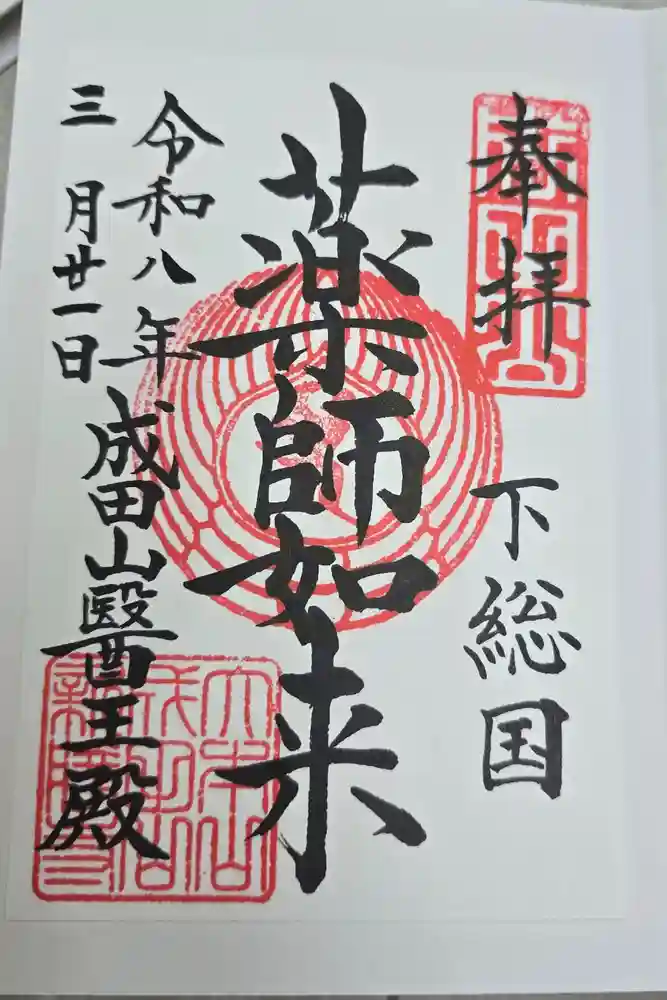 奉拝
下総国
薬師如来
令和八年
三月廿一日
成田山醫王殿